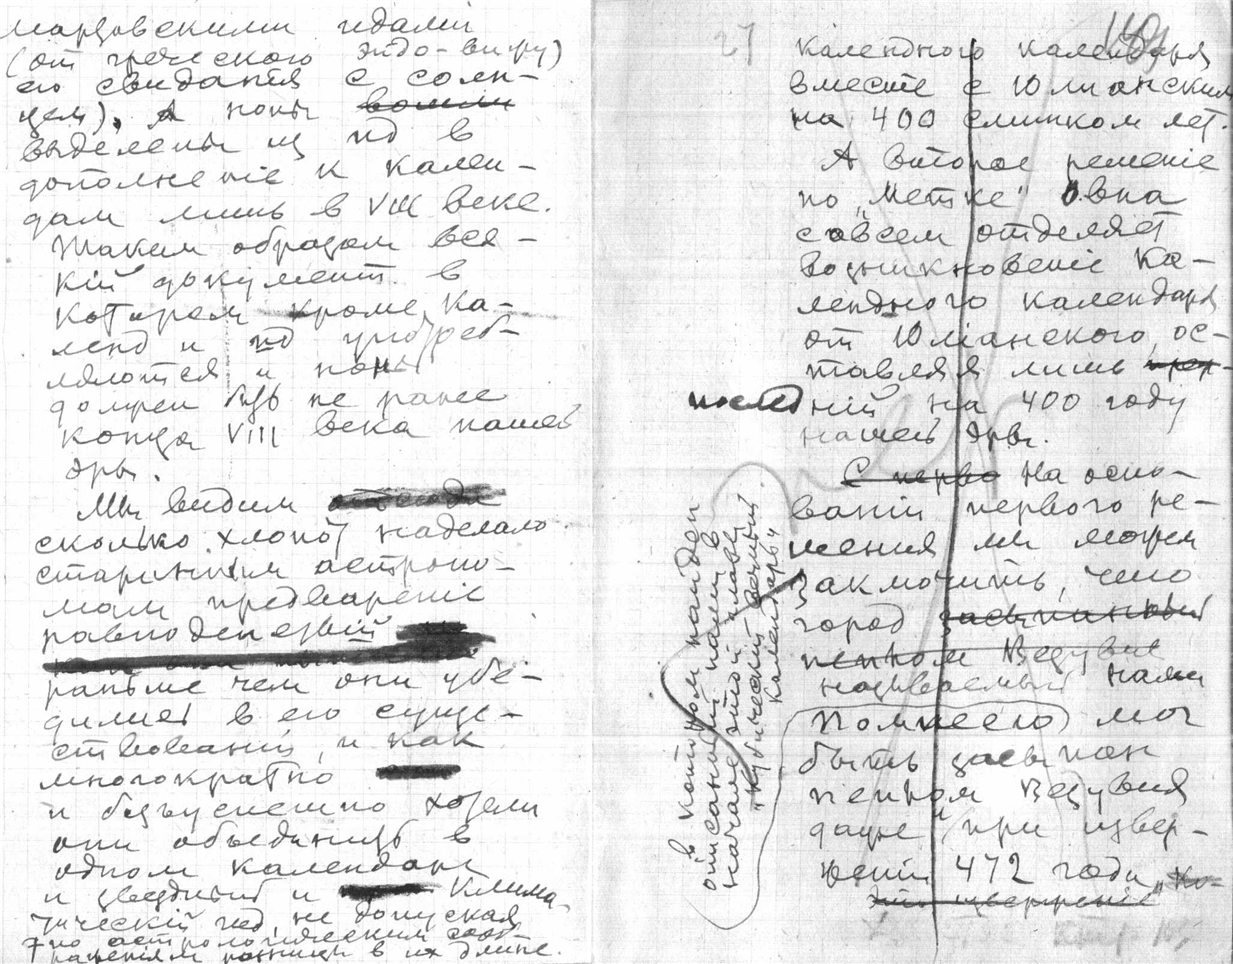 мартовскими идами
(от греческого эйдо-вижу)
его свидания с солн-
цем). А ноны
выделены из ид в
дополнение к кален-
дам лишь в VIII веке.
Таким образом вся-
кій документ в
котором кроме ка-
ленд и ид употреб-
ляются и ноны
должен быть не ранее
конца VIII века нашей
эры.
Мы видим
сколько хлопот наделало
старинным астроно-
мам предвареніе
равноденствій
раньше чем они убе-
дились в его суще-
ствованіи, и как
многократно
и безуспешно хотели
они объединить в
одном календаре
и звездный и клима-
тическій год, не допуская
по астрологическим сооб-
раженіям разницы в их длине.
27
календного календаря
вместе с Юлианским
на 400 слишком лет.
А второе решеніе
по „метке" Овна
совсем отделяет
возникновеніе ка-
лендного календаря
от Юліанского, ос-
тавляя лишь
послед ній на 400 году
нашей эры.
С перво На осно-
ваніи первого ре-
шения мы можем
заключить, что
город засыпанный
пеплом Везувие
называемый нами
Помпеею мог
быть засыпан
пеплом Везувия
даже и при извер-
женіи 472 года,
это извержение
в котором найден
описанный нами в
начале этой главы
"кубический вечный
календарь"